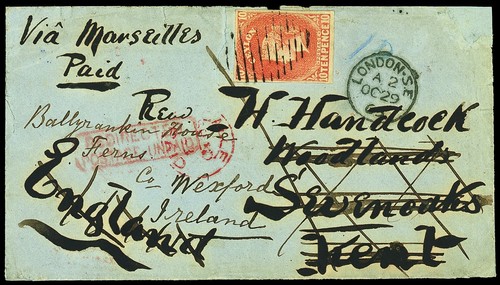 Via Marseilles
Paid
CEYLON
10 TENPENCE 10
LONDON-S.E.
A 2
OC 29
Rev W. Handcock
Woodlands
Sevenoaks
Kent
England
Ballyrankin House
Ferns
Co Wexford
Ireland
PAID